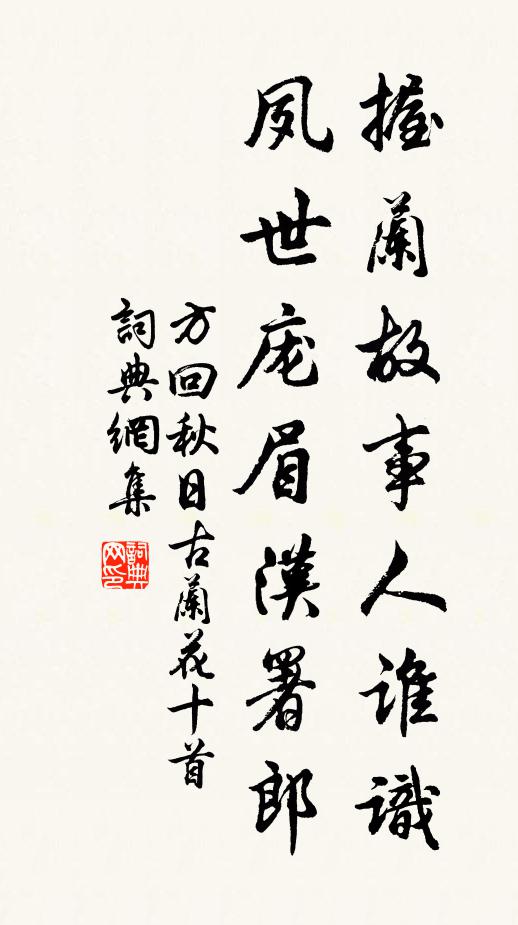 握蘭故事人誰識
夙世庞眉漢署郎
方回秋日古蘭花十首
詞典網集
詞典网印